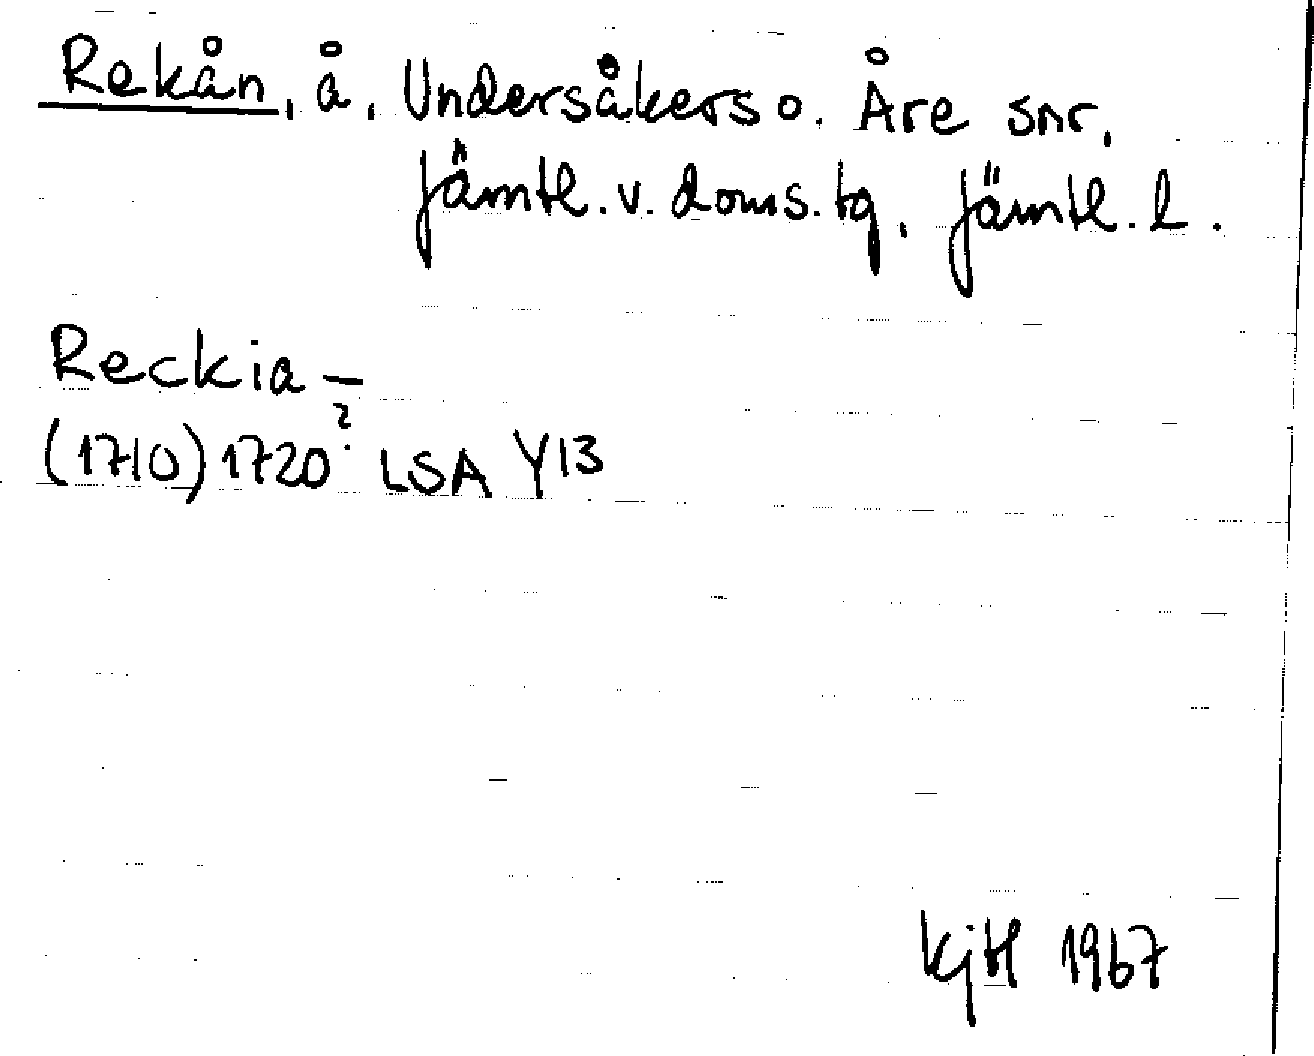 Rekån, å, Undersåkers o. Åre snr,
Jämtl. v. doms. tg, Jämtl. l.
Reckia –
(1710) 1720? LSA Y13
KjH 1967